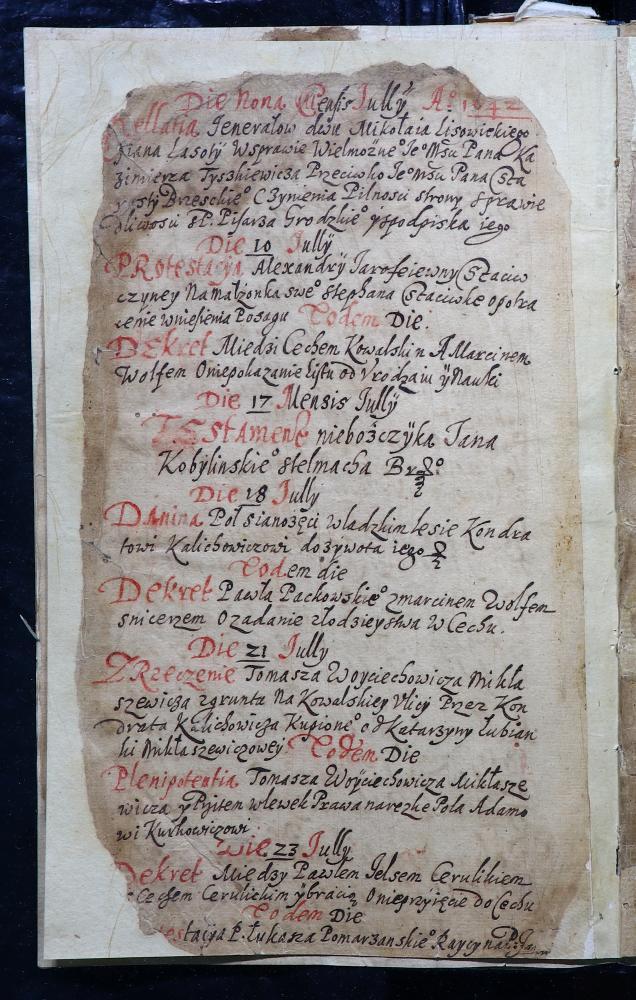 Die Nona Mensis Jullÿ A° 1642
Rellatia Jenerałow dwu Mikołaia Lisowickiego
Jana Lasoty Wsprawie Wielmożne° Je°Mśći Pana Ka
zimierza Tyszkiewicza Przeciwko Je°Mśći Pana Sta
rosty Brzeskie° Czynienia Pilnosci strony sprawie
dliwosci P. Pisarza Grodzkie° y podpiska iego
Die 10 Jullÿ
PRotestacÿa Alexandrÿ Jarofeiewny Staciw
czyney Na małżonka swe° Stephana Staciwke opotra
cenie wniesienia Posagu Eodem Die.
DEkret Miedzi Cechem Kowalskim A Marcinem
Wolfem Oniepokazanie Listu od Vrodzaiu ÿ Nauki
Die 17 Mensis Jullÿ
TEStAment nieboszczÿka Jana
Kobylinskie° stelmacha
Die 18 Jully
DAnina Pol sianożęci władzkim lesie Kondra
towi Kalichowiczowi dożywota iego
Eodem die
DEkret Pawła Packowskie° z marcinem Wolfem
snicerzem O zadanie złodzieystwa W Cechu.
Die 21 Jullÿ
ZRzeczenie Tomasza Woyciechowicza Mikła
szewicza zgruntu Na Kowalskiey Vlicy Przez Kon
drata Kalichowicza Kupione° od Katarzyny Łubian
ki Mikłaszewiczowey Eodem Die
Plenipotentia Tomasza Woÿciechowicza Mikłasze
wicza y wlewek Prawa narezke Pola Adamo
wi Kurhowiczowi
Die 23 Jullÿ
Dekret Miedzy Pawlem Jelsem Cerulikiem
Cechem Cerulickim ÿ bracią Onieprzyięcie do Cechu
Eodem Die
estacÿa P. Łukasza Pomarzanskie° Raycy na P. Jan